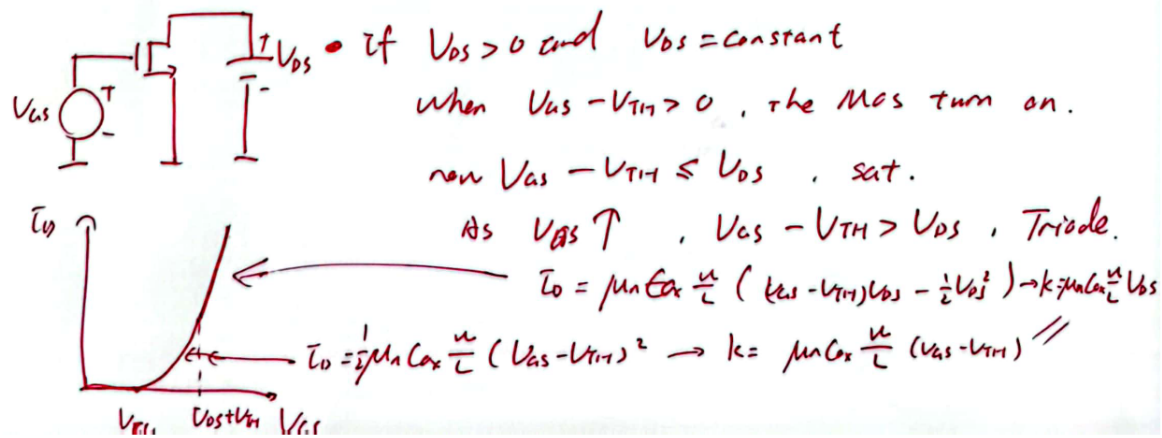 VGS + -
+ VDS -
• If VDS > 0 and VDS = constant
when VGS - VTH > 0 , the MOS turn on.
now VGS - VTH ≤ VDS , sat.
As VGS ↑ , VGS - VTH > VDS , Triode.
ID = μn Cox W/L ( (VGS - VTH)VDS - 1/2 VDS² ) → k = μn Cox W/L VDS
ID = 1/2 μn Cox W/L (VGS - VTH)² → k = μn Cox W/L (VGS - VTH) //
ID
VTH VDS+VTH VGS